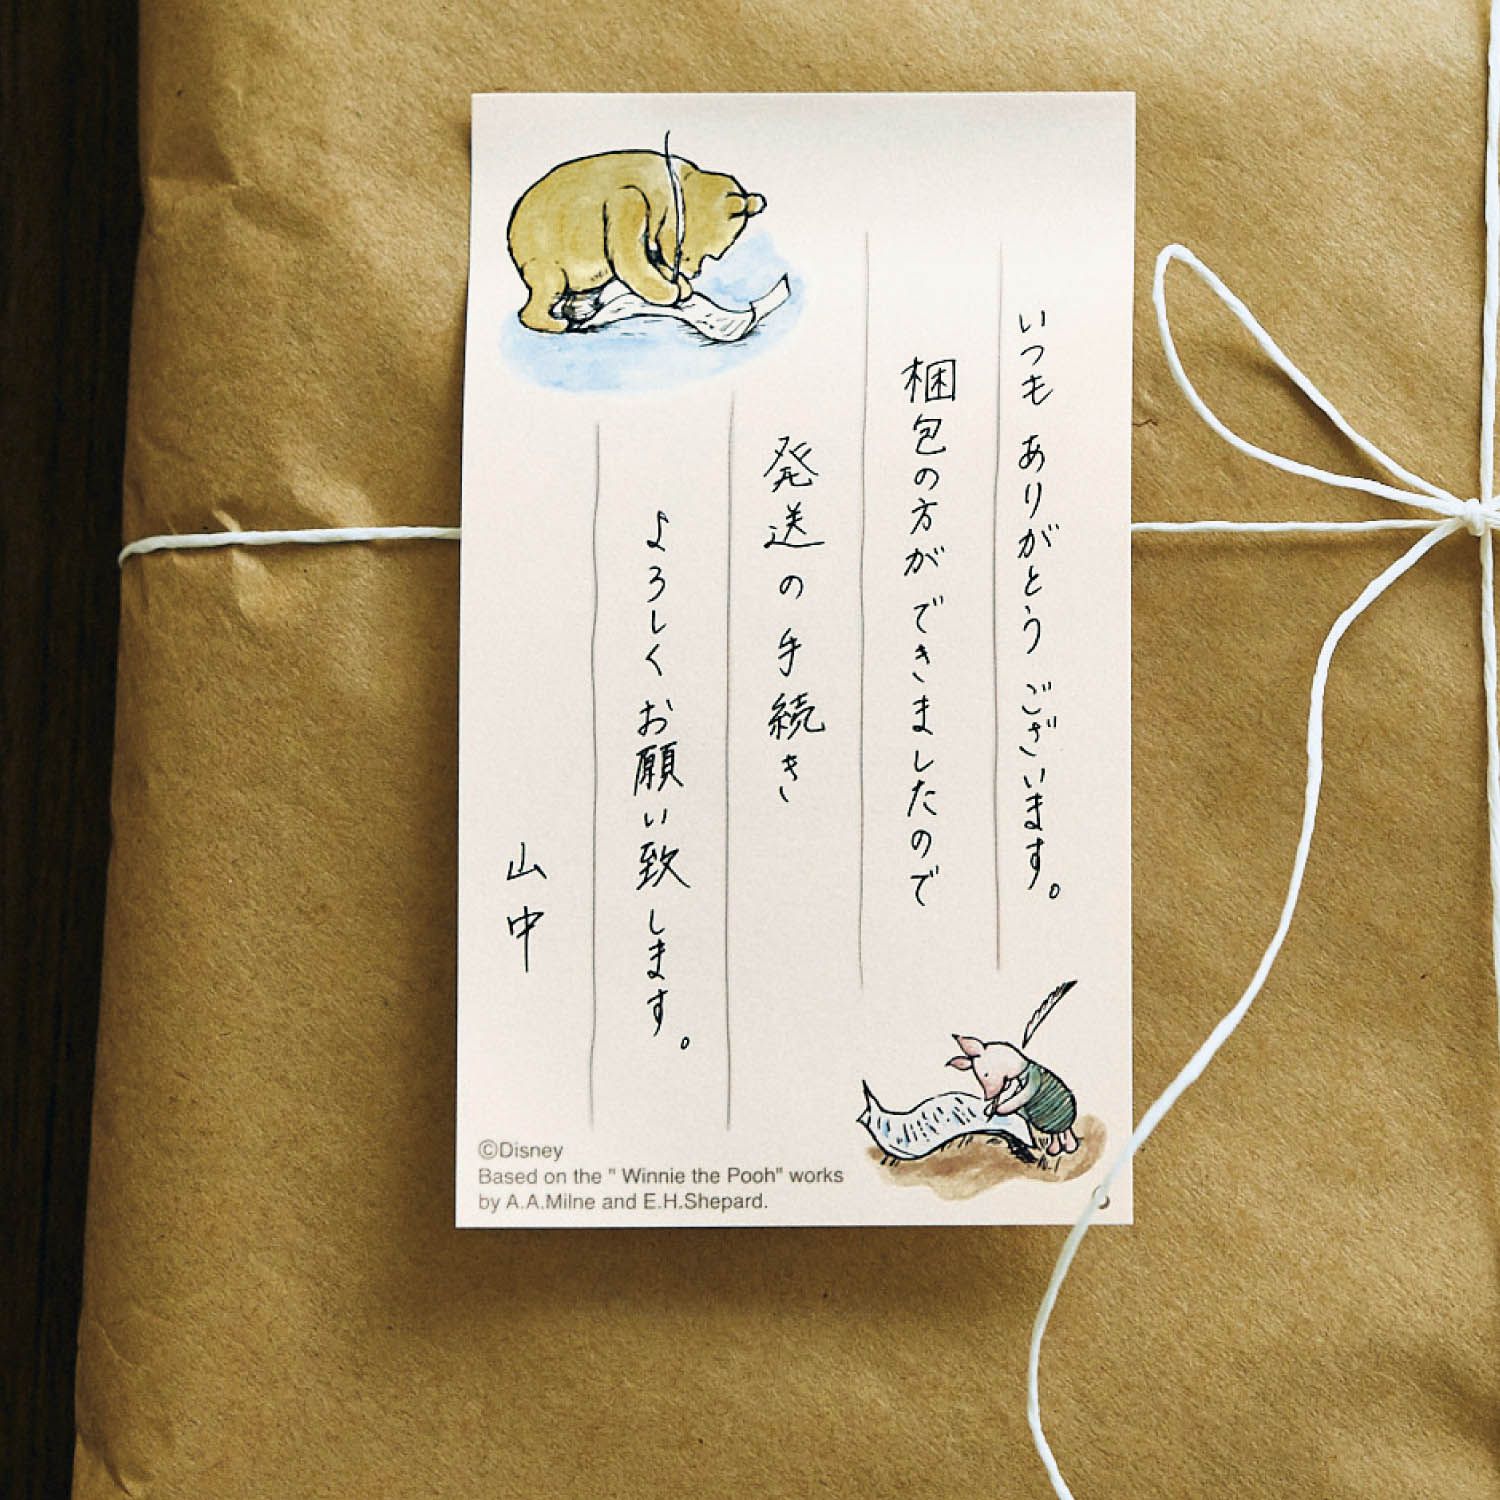 いつもありがとうございます。
梱包の方ができましたので
発送の手続き
よろしくお願い致します。
山中
©Disney
Based on the " Winnie the Pooh" works
by A.A.Milne and E.H.Shepard.